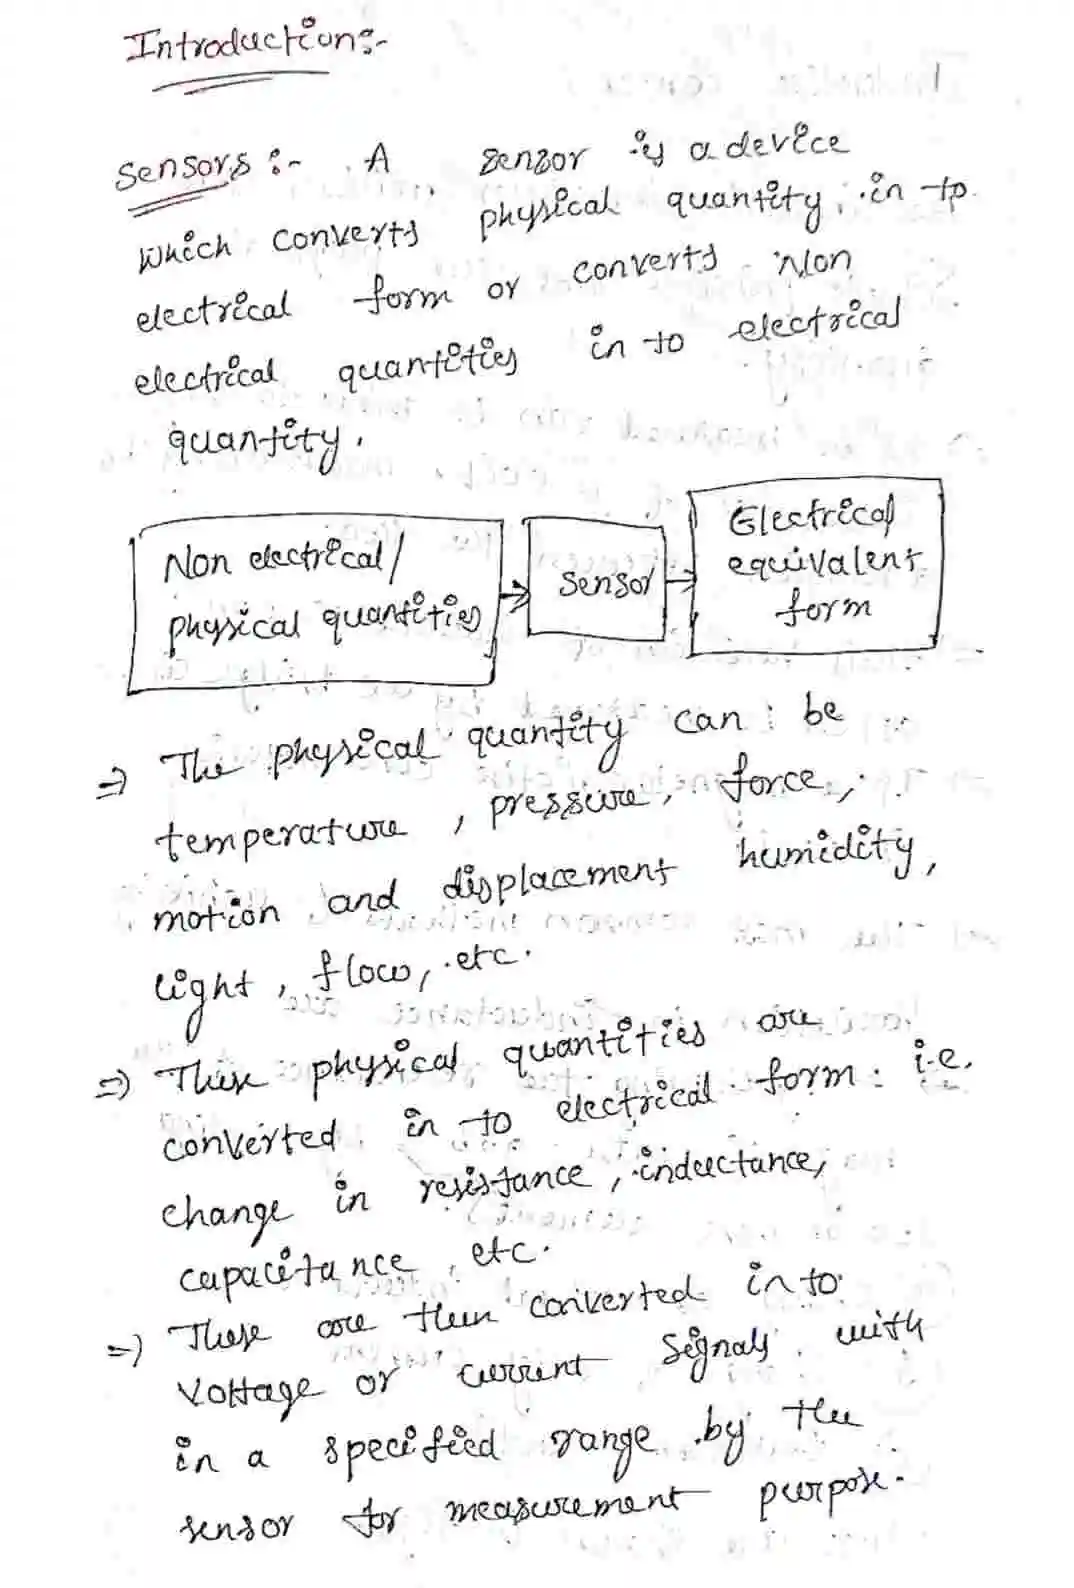 Introduction:-
Sensors:- A sensor is a device
which converts physical quantity in to
electrical form or converts Non
electrical quantities in to electrical
quantity.
Non electrical/
physical quantities
sensor
Electrical
equivalent
form
⇒ The physical quantity can be
temperature, pressure, force,
motion and displacement humidity,
light, flow, etc.
⇒ These physical quantities are
converted in to electrical form. i.e.
change in resistance, inductance,
capacitance, etc.
⇒ These are then converted in to
voltage or current signals with
in a specified range by the
sensor for measurement purpose.